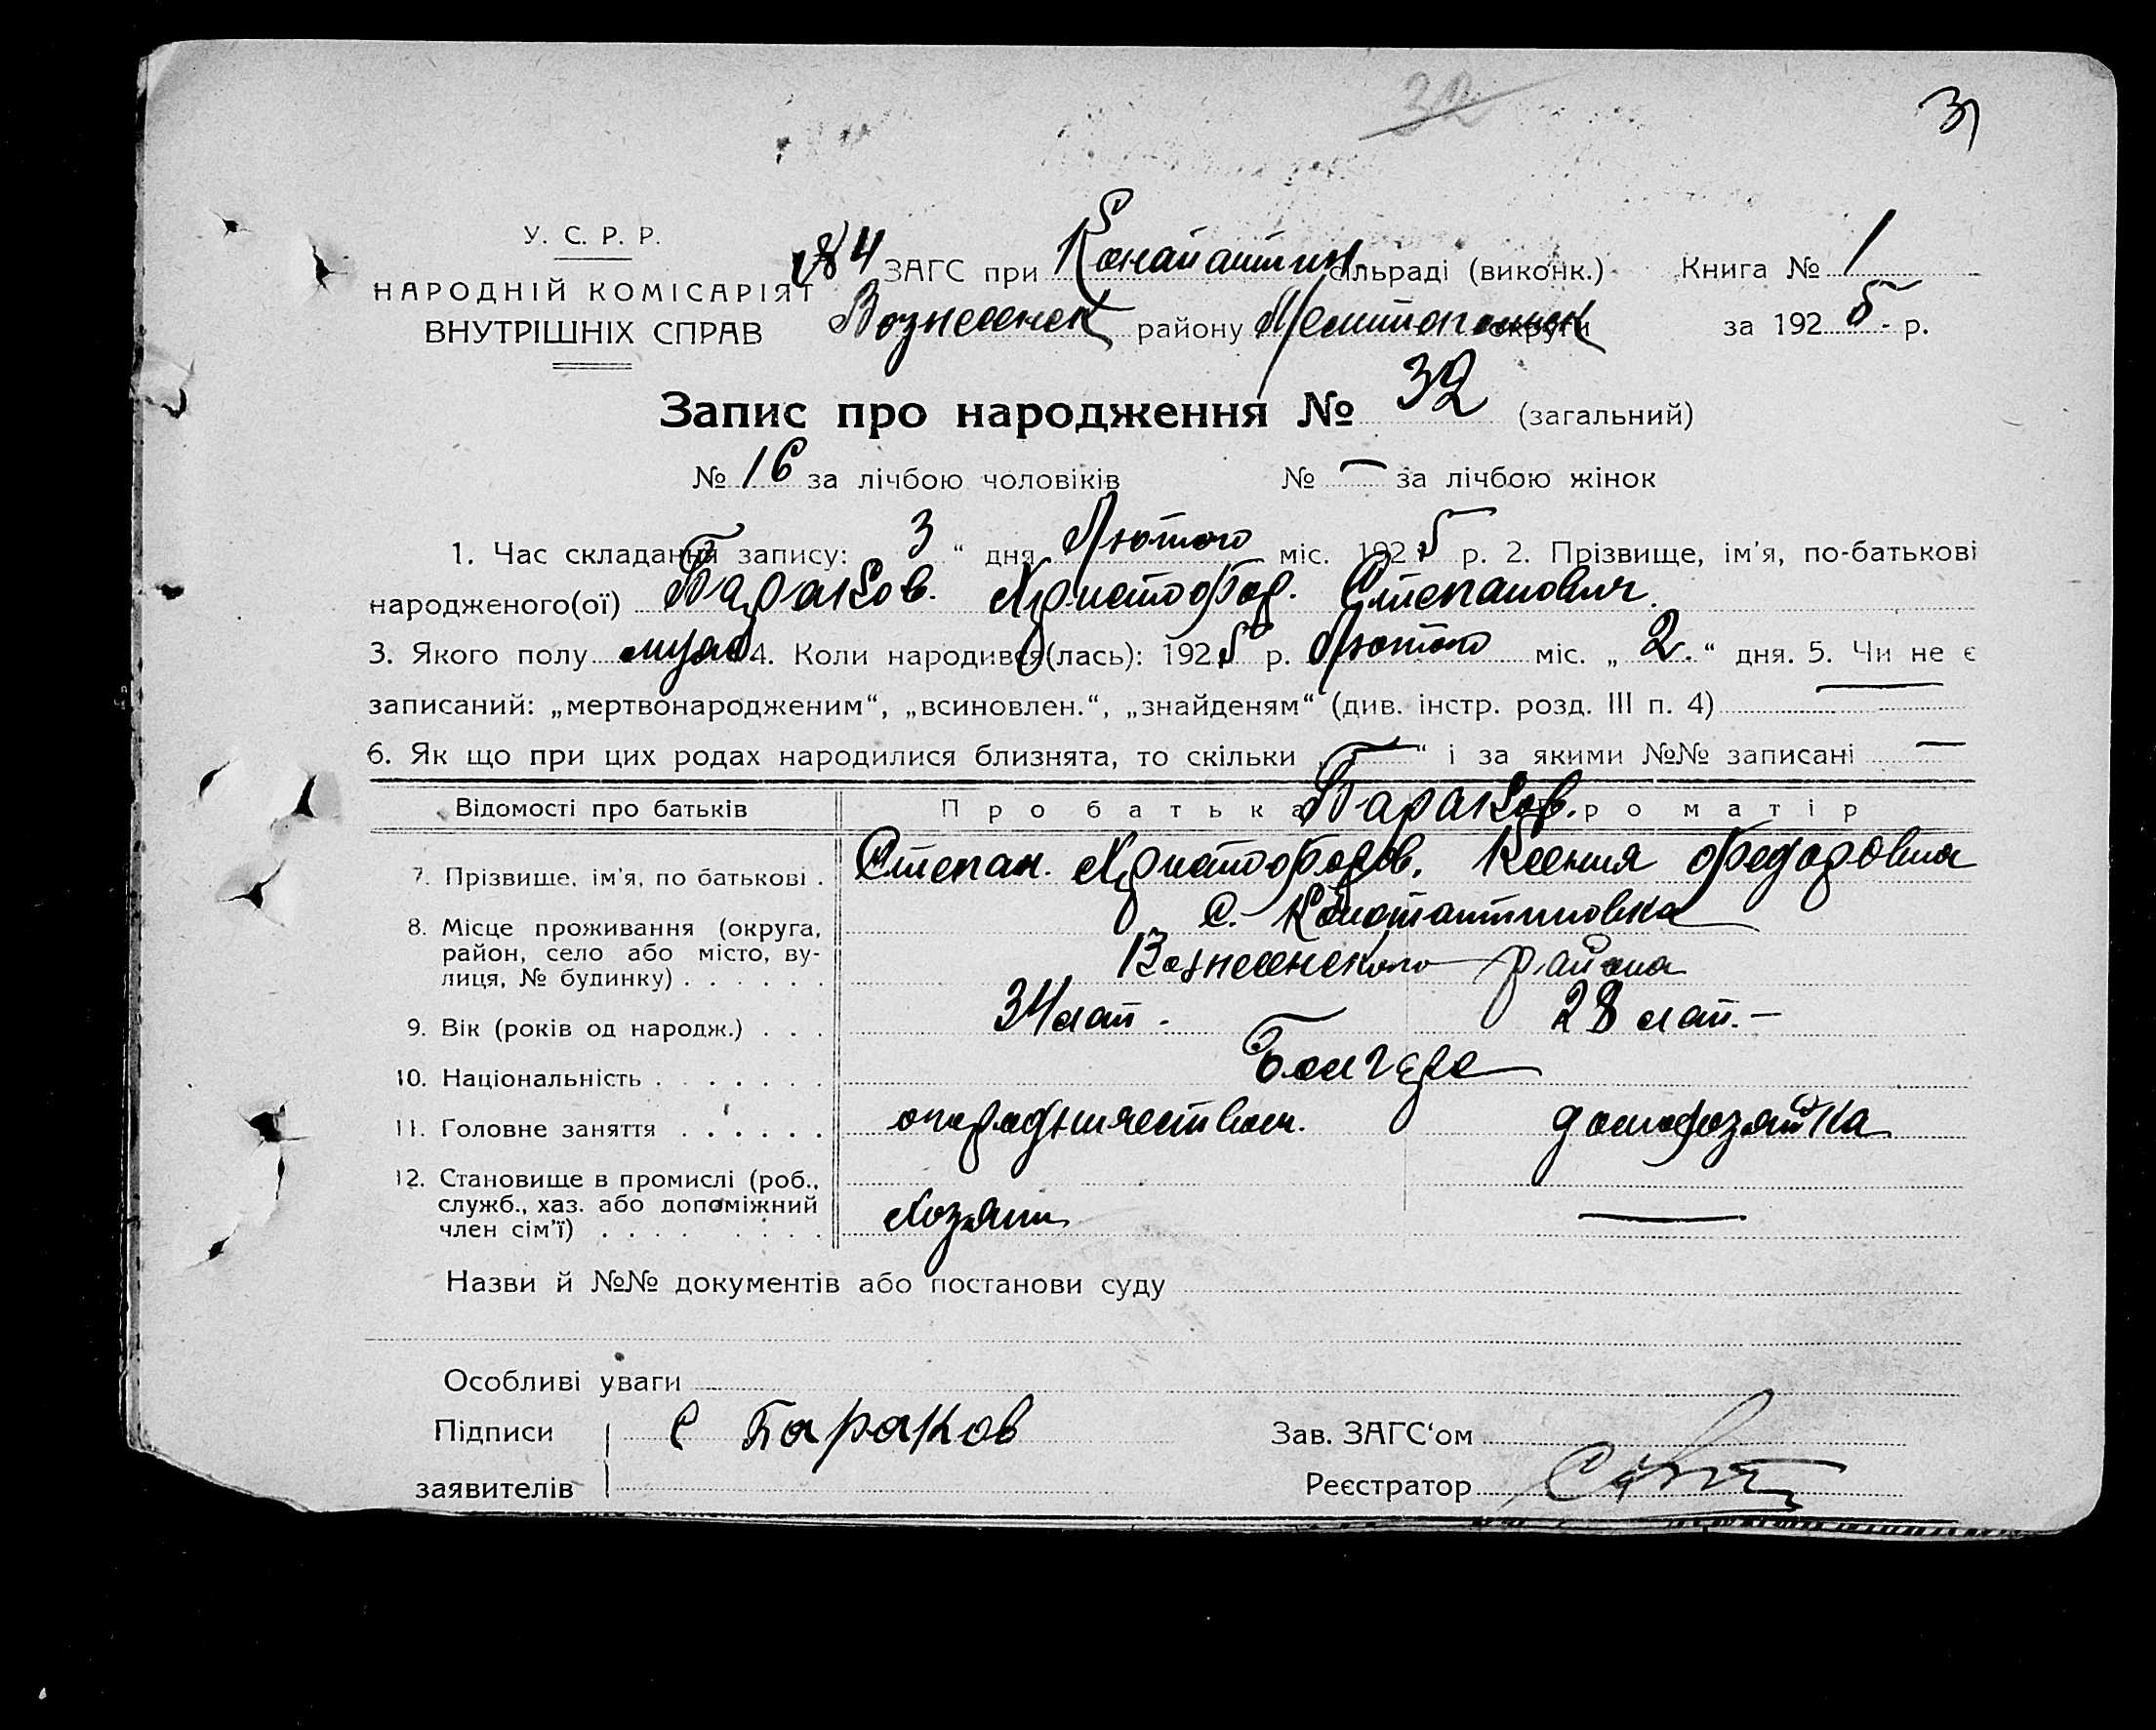 32
31
У. С. Р. Р.
НАРОДНІЙ КОМІСАРІЯТ
ВНУТРІШНІХ СПРАВ
№4 ЗАГС при Констаптин сільраді (виконк.) Книга № 1
Вознесенск району Мелитопольск округи за 1925 р.
Запис про народження № 32 (загальний)
№ 16 за лічбою чоловіків № — за лічбою жінок
1. Час складання запису: 3 " дня Лютого міс. 1925 р. 2. Прізвище, ім'я, по-батькові
народженого(ої) Бараков. Христофор. Степанович.
3. Якого полу муж 4. Коли народився(лась): 1925 р. Лютого міс. „ 2. " дня. 5. Чи не є
записаний: „мертвонародженим", „всиновлен.", „знайденям" (див. інстр. розд. III п. 4) —
6. Як що при цих родах народилися близнята, то скільки „ — " і за якими №№ записані —
Відомості про батьків Про батька Про матір
Бараков.
7. Прізвище, ім'я, по батькові . Степан. Христофоров. Ксения Федоровна
8. Місце проживання (округа, район, село або місто, вулиця, № будинку) . . . . . . с. Константиновка
Вознесенского района
9. Вік (років од народж.) . . . 34 лет. 28 лет. —
10. Національність . . . . . . . Болгаре
11. Головне заняття . . . . . . домохозяйка
12. Становище в промислі (роб., служб., хаз. або допоміжний член сім'ї) . . . . . . . . Хозяин —
Назви й №№ документів або постанови суду
Особливі уваги
Підписи С Бараков Зав. ЗАГС'ом
заявителів Реєстратор